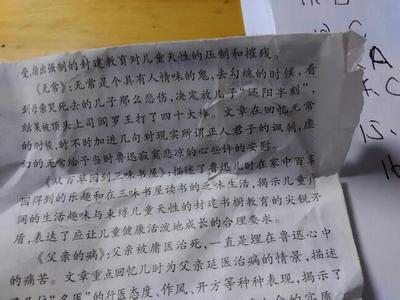 受,指出强制的封建教育对儿童天性的压制和摧残。
《无常》:无常是个具有人情味的鬼,去勾魂的时候,看
到母亲哭死去的儿子那么悲伤,决定放儿子“还阳半刻”,
结果被顶头上司阎罗王打了四十大棒。文章在回忆无常
的时候,时不时加进几句对现实所谓正人君子的讽刺,虚
幻的无常给予当时鲁迅寂寞悲凉的心些许的安慰。
《从百草园到三味书屋》:描述了鲁迅儿时在家中百草
园得到的乐趣和在三味书屋读书的乏味生活,揭示儿童广
阔的生活趣味与束缚儿童天性的封建书塾教育的尖锐矛
盾,表达了应让儿童健康活泼地成长的合理要求。
《父亲的病》:父亲被庸医治死,一直是埋在鲁迅心中
的痛苦。文章重点回忆儿时为父亲延医治病的情景,描述
“名医”的行医态度、作风、开方等种种表现,揭示了
的实质
A
C
15.